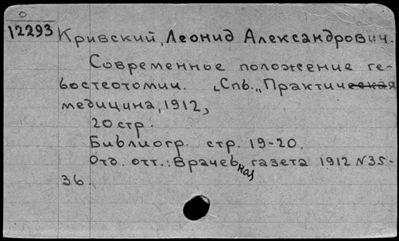 0
12293
Кривский, Леонид Александрович.
Современное положение ге-
бостеотомии. Спб., Практическая
медицина, 1912,
20 стр.
Библиогр. стр. 19-20.
Отд. отт.: Врачебная газета 1912 N35-
36.